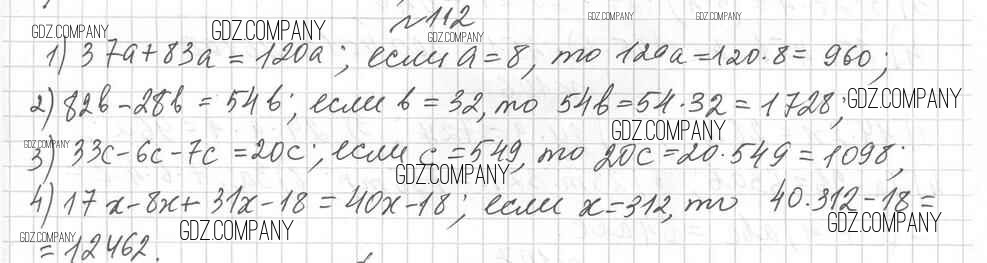 №112
GDZ.COMPANY GDZ.COMPANY GDZ.COMPANY GDZ.COMPANY GDZ.COMPANY
1) 37a+83a = 120a; если a=8, то 120a=120·8= 960;
2) 82b-28b = 54b; если b = 32, то 54b=54·32 = 1728; GDZ.COMPANY
GDZ.COMPANY
3) 33c-6c-7c =20c; если c =549, то 20c=20·549=1098;
GDZ.COMPANY GDZ.COMPANY
4) 17x-8x+31x-18 = 40x-18; если x=312, то 40·312-18=
GDZ.COMPANY GDZ.COMPANY GDZ.COMPANY
= 12462.